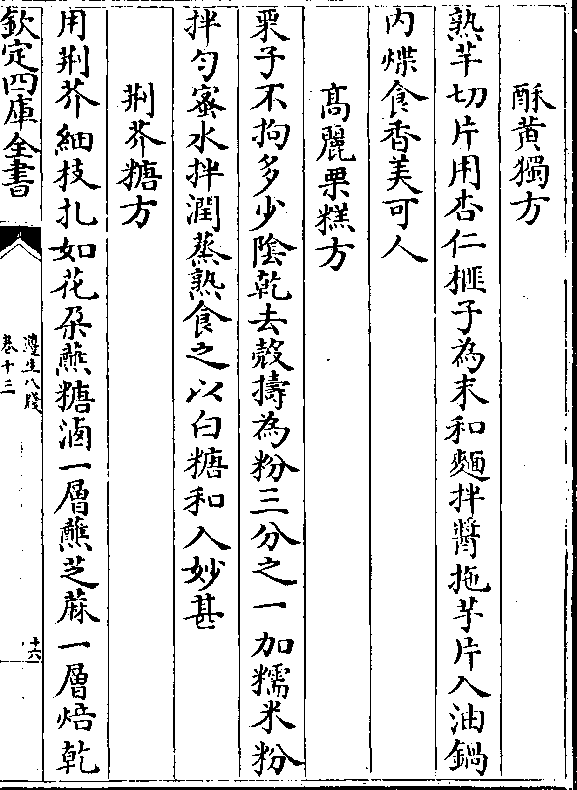 酥黄獨方
熟芋切片用杏仁榧子為末和麵拌醬拖芋片入油鍋
内煠食香美可人
髙麗栗糕方
栗子不拘多少隂乾去殻擣為粉三分之一加糯米粉
拌勻蜜水拌潤蒸熟食之以白糖和入妙甚
荆芥糖方
用荆芥細枝扎如花朶蘸糖滷一層蘸芝蔴一層焙乾
欽定四庫全書
遵生八牋
卷十三
十六